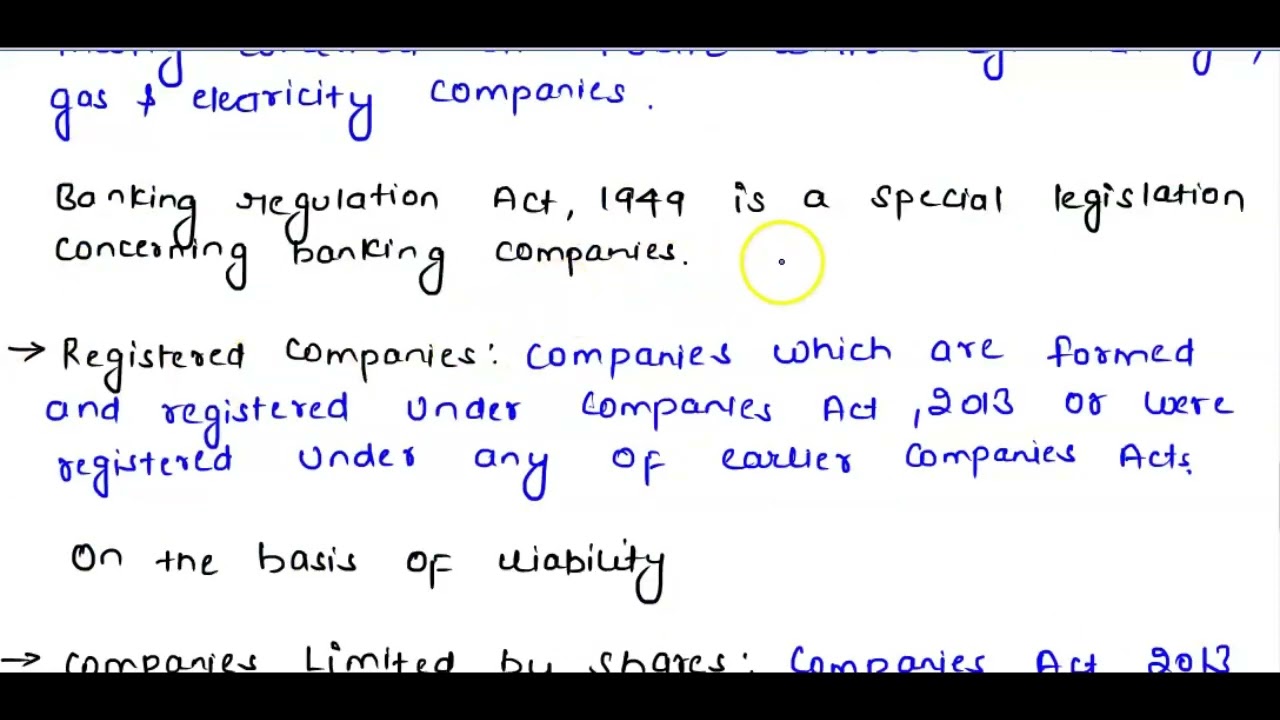 gas & electricity companies.
Banking regulation Act, 1949 is a special legislation
concerning banking companies.
→ Registered companies: companies which are formed
and registered under companies Act, 2013 or were
registered under any of earlier companies Acts.
On the basis of liability
→ companies Limited by shares: companies Act 2013